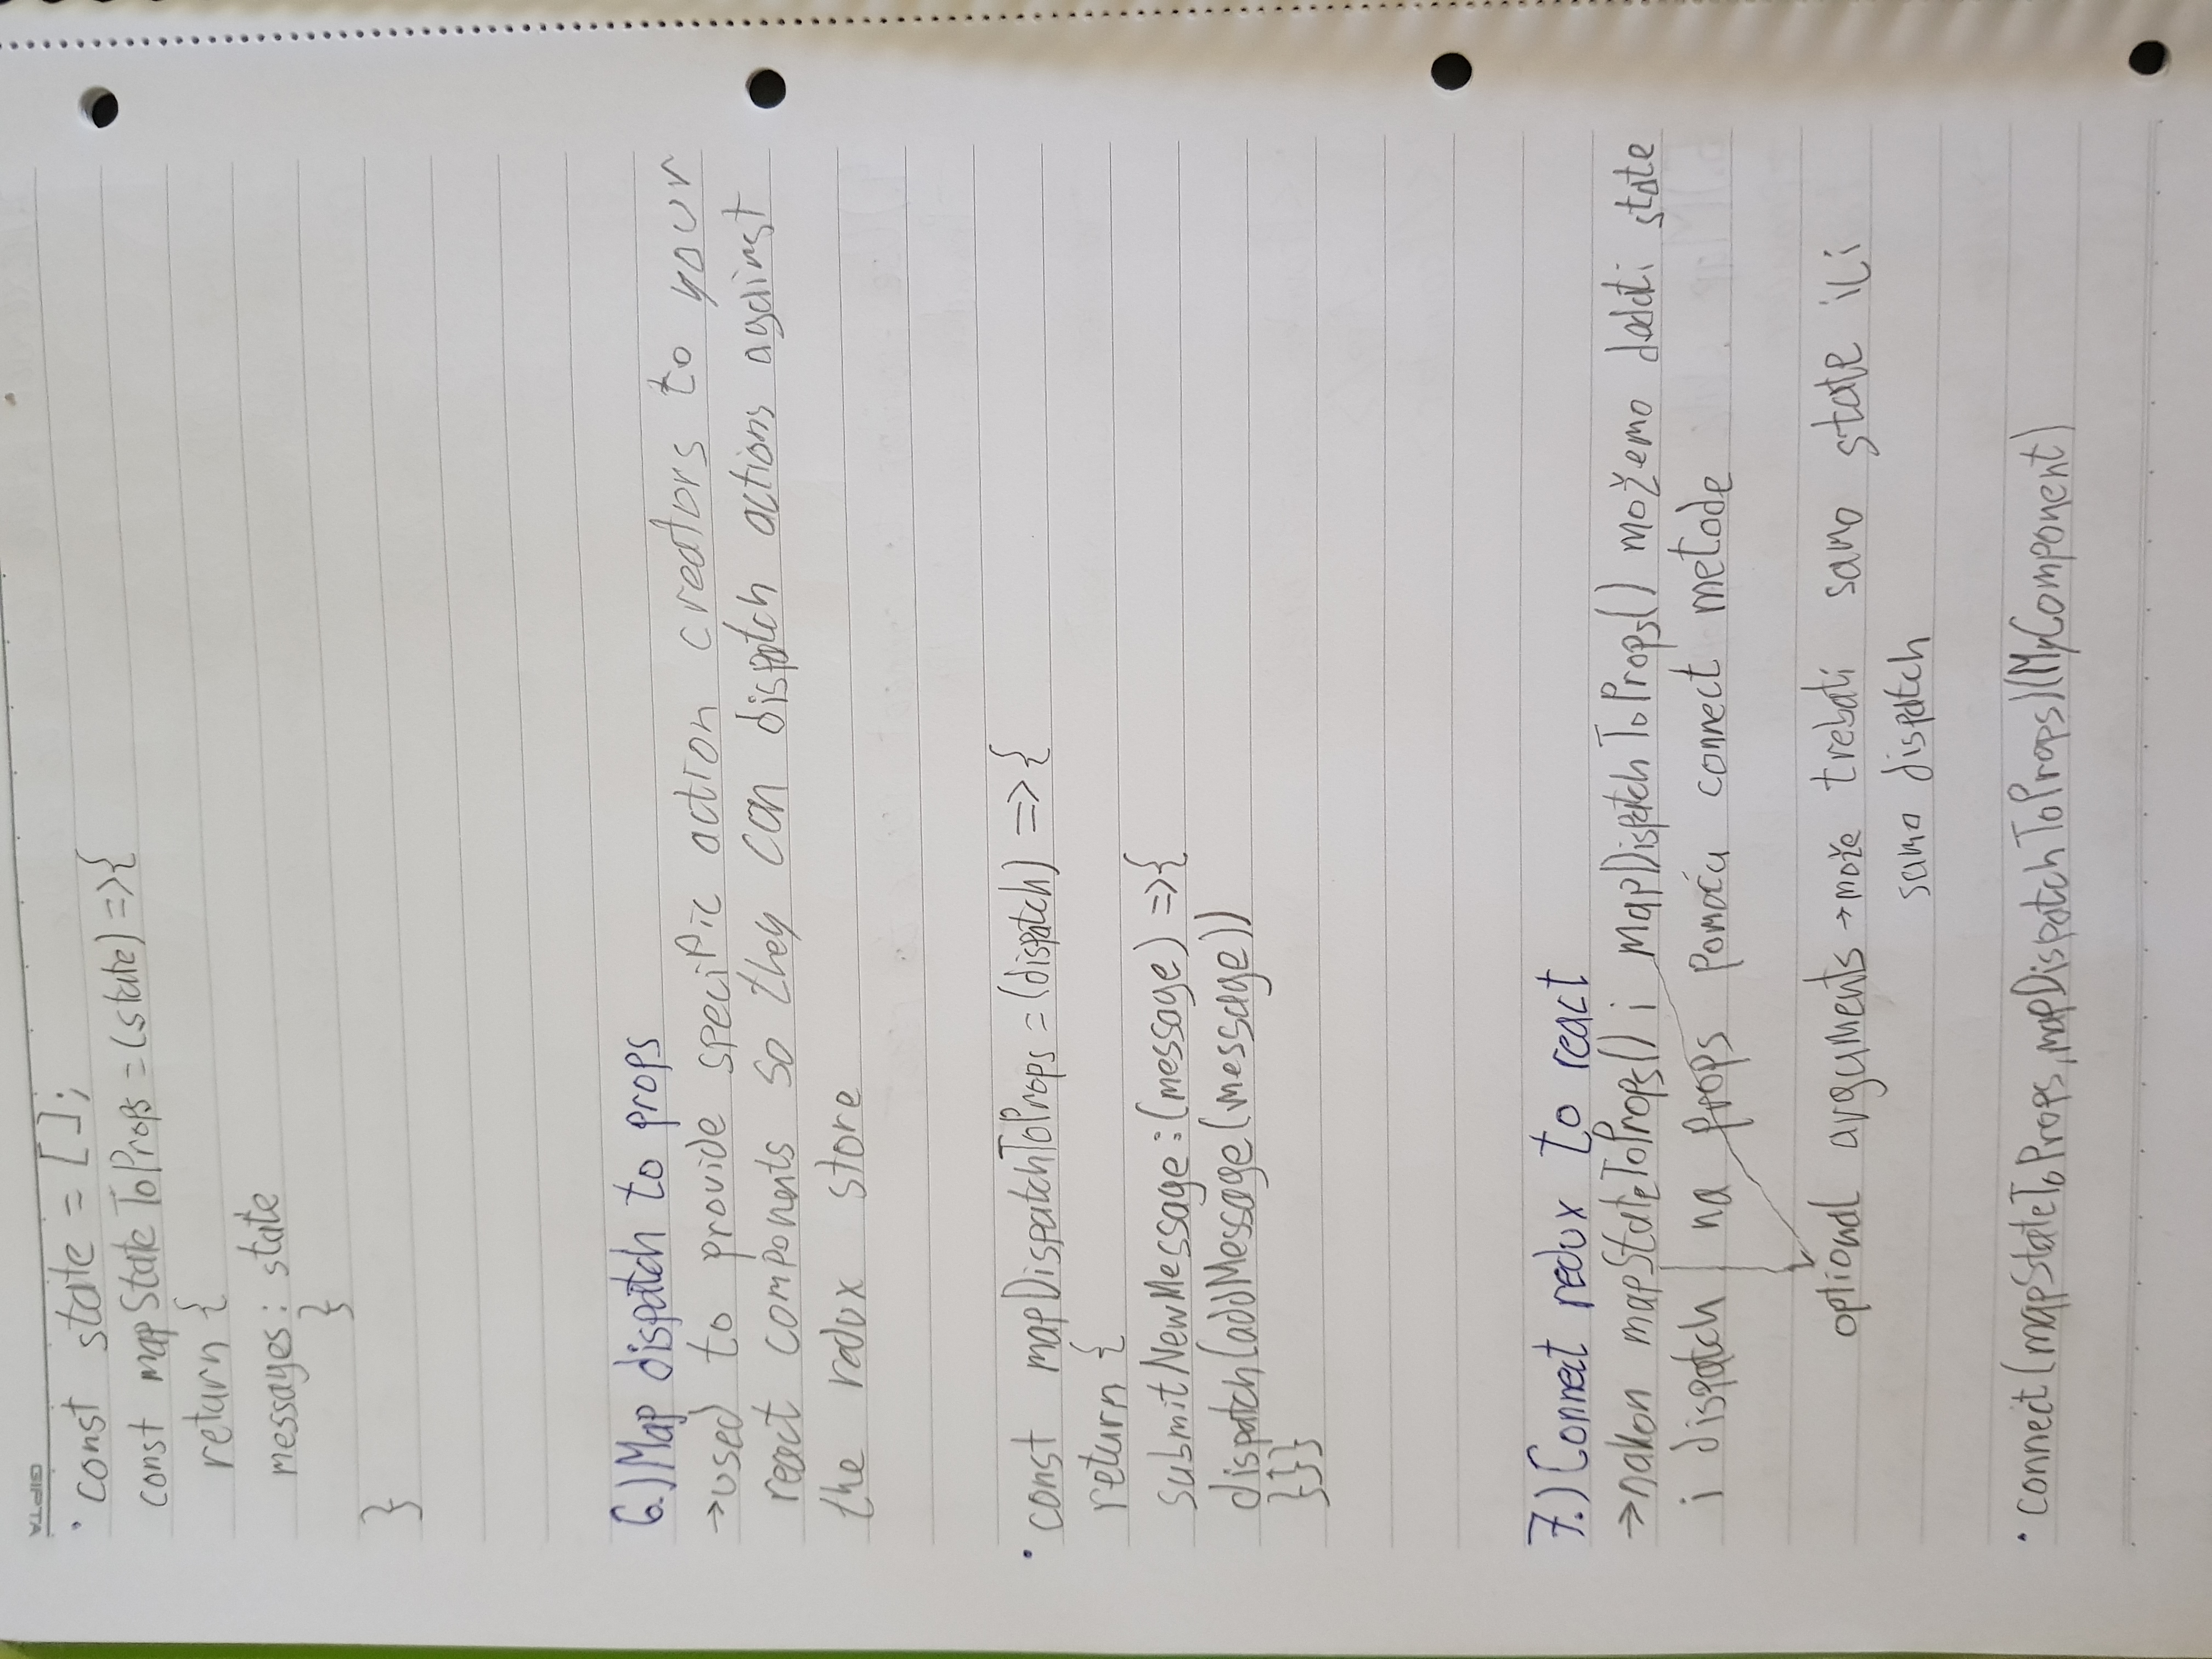 GIPTA
• const state = [];
const mapStateToProps = (state) => {
return {
messages: state
}
}
6.) Map dispatch to props
→ used to provide specific action creators to your
react components so they can dispatch actions against
the redux store
• const mapDispatchToProps = (dispatch) => {
return {
submitNewMessage: (message) => {
dispatch(addMessage(message))
}}}
7.) Connect redux to react
→ nakon mapStateToProps() i mapDispatchToProps() možemo dodati state
i dispatch na props pomoću connect metode
optional arguments → može trebati samo state ili
samo dispatch
• connect(mapStateToProps, mapDispatchToProps)(MyComponent)